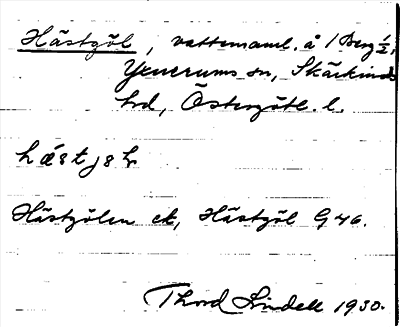 Hästgöl, vattensaml. å 1 Berg ½,
Yxnerums sn, Skärkinds
hd, Östergötl. l.
Hästgölen ek, Hästgöl G 46.
Thord Lindell 1930.